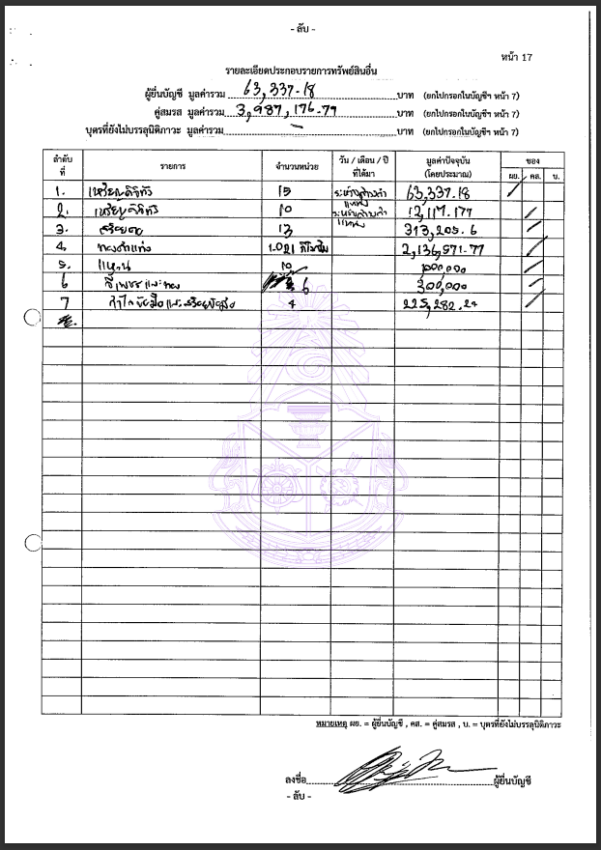 - ลับ -
หน้า 17
รายละเอียดประกอบรายการทรัพย์สินอื่น
ผู้ยื่นบัญชี มูลค่ารวม 63,337.18 บาท (ยกไปกรอกในบัญชีฯ หน้า 7)
คู่สมรส มูลค่ารวม 3,987,176.77 บาท (ยกไปกรอกในบัญชีฯ หน้า 7)
บุตรที่ยังไม่บรรลุนิติภาวะ มูลค่ารวม - บาท (ยกไปกรอกในบัญชีฯ หน้า 7)
ลำดับที่ รายการ จำนวนหน่วย วัน / เดือน / ปี ที่ได้มา มูลค่าปัจจุบัน (โดยประมาณ) ของ
ผย. คส. บ.
1. 15 63,337.18 /
2. 10 /
3. 13 313,205.6 /
4. ทองคำแท่ง 1.021 กิโลกรัม /
5. แหวน 10 /
6 6 300,000 /
7 4 /
หมายเหตุ ผย. = ผู้ยื่นบัญชี , คส. = คู่สมรส , บ. = บุตรที่ยังไม่บรรลุนิติภาวะ
ลงชื่อ ผู้ยื่นบัญชี
- ลับ -